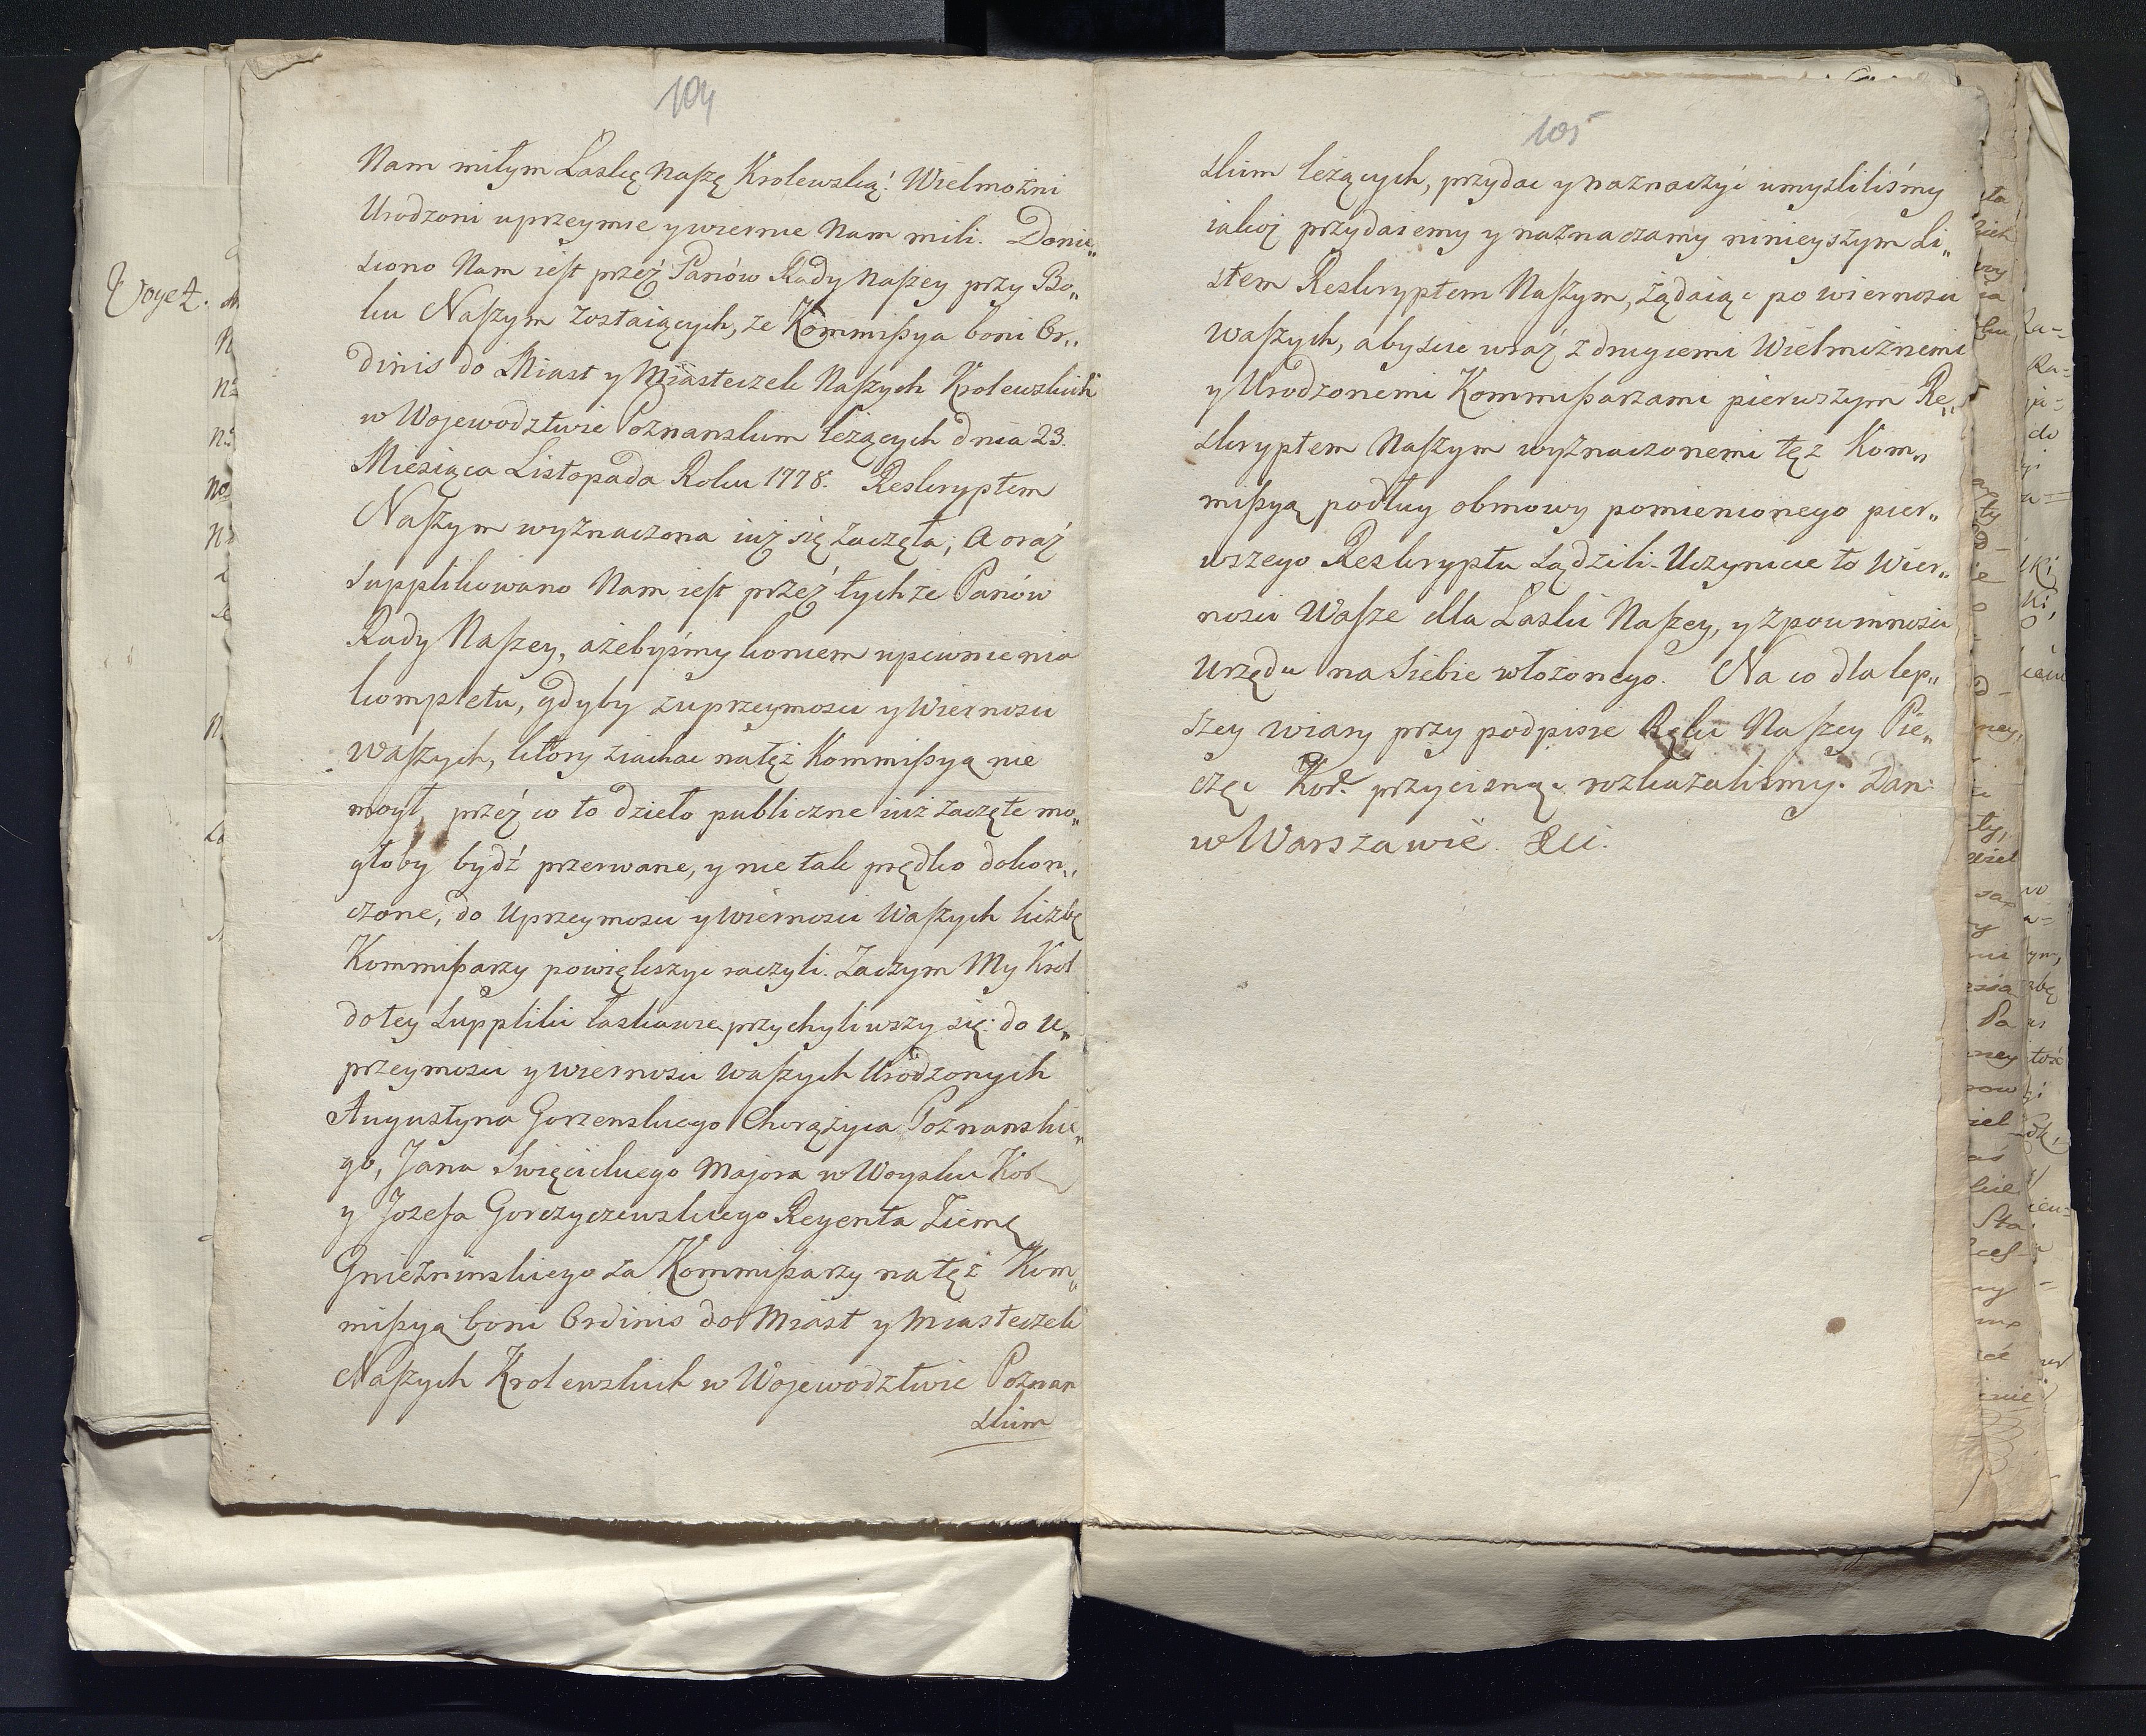 104
Nam miłym Łaskę Naszę Krolewską! Wielmożni
Urodzoni uprzeymie y wiernie Nam mili. Donie„
siono Nam iest przez Panów Rady Naszey przy Bo„
ku Naszym zostaiących, że Kommissya boni Or„
dinis do Miast y Miasteczek Naszych Krolewskich
w Wojewodztwie Poznanskim leżących dnia 23.
Miesiąca Listopada Roku 1778. Reskryptem
Naszym wyznaczona iuż się zaczęła; a oraz
supplikowano Nam iest przez tychże Panów
Rady Naszey, ażebyśmy koncem upewnienia
kompletu, gdyby z uprzeymości y Wiernosci
Waszych, ktory ziachac na tęż Kommissyą nie
mogł, przez co to dzieło publiczne iuż zaczęte mo„
głoby bydź przerwane, y nie tak prędko dokon„
czone, do Uprzeymosci y Wiernosci Waszych liczbę
Kommissarzy powiększyć raczyli. Zaczym My Krol
do tey suppliki łaskawie przychyliwszy się: do U„
przeymosci y wiernosci waszych Urodzonych
Augustyna Gorzenskiego Chorążyca Poznanskie„
go, Jana Swięcickiego Majora w Woysku Kor
y Jozefa Gorczyczewskiego Regenta Ziemę
Gnieźninskiego za Kommissarzy na tęż Kom„
missyą boni Ordinis do Miast y Miasteczek
Naszych Krolewskich w Wojewodztwie Poznan
skim
105
skim leżących, przydac y naznaczyć umysliliśmy
iakoż przydaiemy y naznaczamy ninieyszym Li„
stem Reskryptem Naszym, żądaiąc po wiernosci
waszych, abyscie wraz z drugiemi Wielmożnemi
y Urodzonemi Kommissarzami pierwszym Re„
skryptem Naszym wyznaczonemi tęż Kom„
missyą podług obmowy pomienionego pier„
wszego Reskryptu sądzili. Uczynicie to Wier„
nosci Wasze dla Łaski Naszey, y z powinnosci
Urzędu na siebie włożonego. Na co dla lep„
szey wiary przy podpisie Ręki Naszey Pie„
częć Kor. przycisnąć rozkazalismy. Dan
w Warszawie. &c.
Voyez.